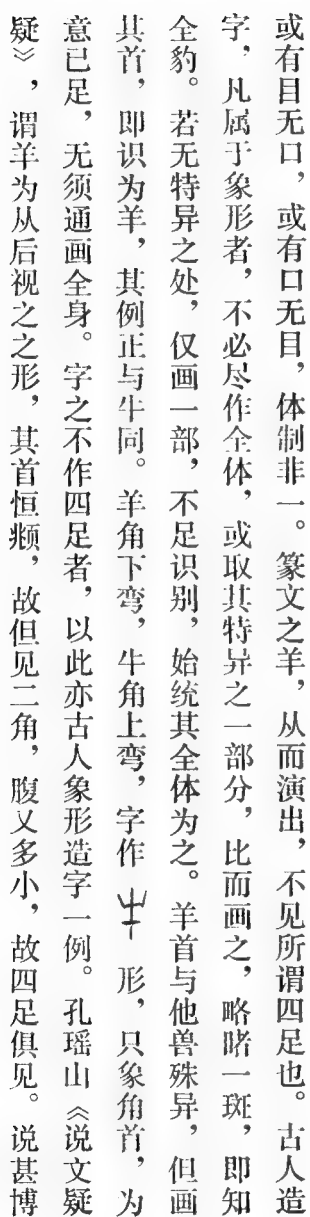 或有目无口，或有口无目，体制非一。篆文之羊，从而演出，不见所谓四足也。古人造
字，凡属于象形者，不必尽作全体，或取其特异之一部分，比而画之，略睹一斑，即知
全豹。若无特异之处，仅画一部，不足识别，始统其全体为之。羊首与他兽殊异，但画
其首，即识为羊，其例正与牛同。羊角下弯，牛角上弯，字作形，只象角首，为
意已足，无须通画全身。字之不作四足者，以此亦古人象形造字一例。孔瑶山《说文疑
疑》，谓羊为从后视之之形，其首恒頫，故但见二角，腹又多小，故四足俱见。说甚博